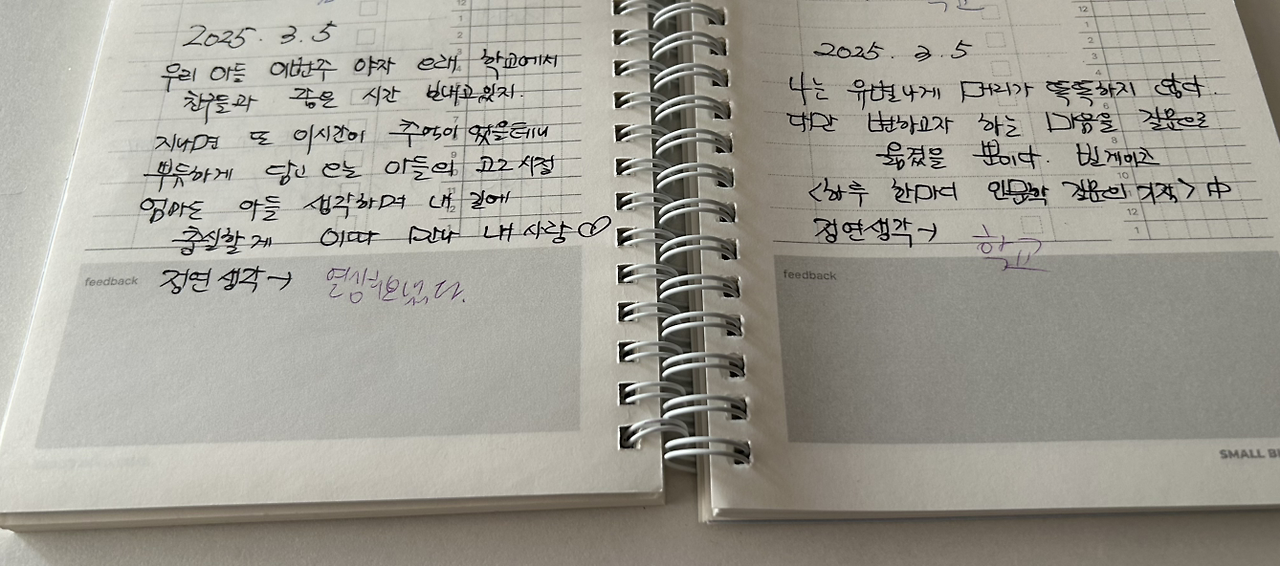 2025. 3. 5
우리 아들 이번주 야자 으로 학교에서
친구들과 같은 시간 보내고 있지.
지나면 또 이시간이 추억이 있을테니
뿌듯하게 담고 오늘 아들의 고2 시절
엄마도 아들 생각하며 내 길에
충실할게 이따 만나 내 사랑
feedback
정연 생각→ 열심히보냈다.
2025. 3. 5
나는 유별나게 머리가 똑똑하지 않다.
다만 변하고자 하는 마음을 질문으로
옮겼을 뿐이다. 빌게이츠
<하루 한마디 인문학 질문의 기적> 中
정연생각→ 학교
feedback
SMALL
12
1
2
3
4
10
12
1